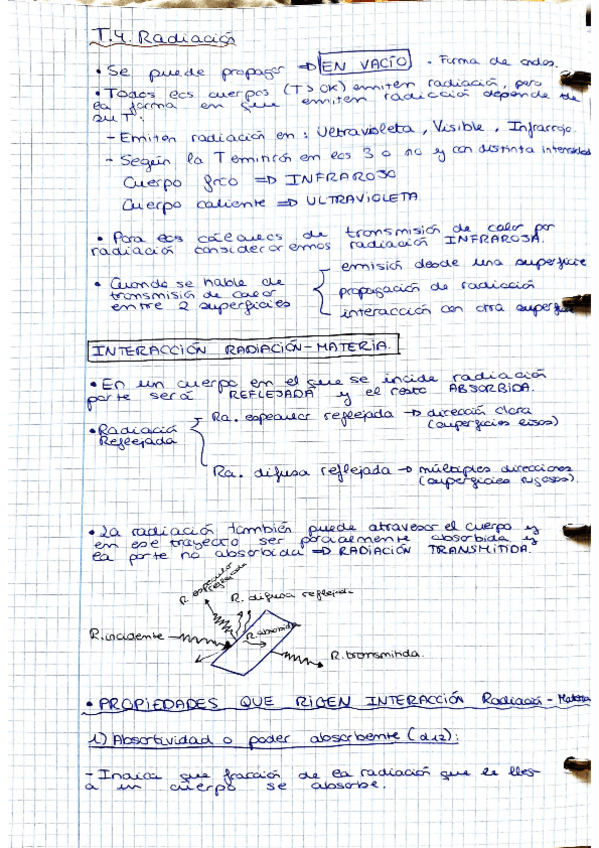 T.4. Radiación
• Se puede propagar => EN VACÍO . Forma de ondas.
• Todos los cuerpos (T > 0K) emiten radiación, pero
la forma en que emiten radiación depende de
su T:
- Emiten radiación en: Ultravioleta, Visible, Infrarrojo.
- Según la T emitirán en los 3 o no y con distinta intensidad
Cuerpo frío => INFRAROJO
Cuerpo caliente => ULTRAVIOLETA
• Para los cálculos de transmisión de calor por
radiación consideraremos radiación INFRAROJA.
• Cuando se hable de
transmisión de calor
entre 2 superficies
emisión desde una superficie
propagación de radiación
interacción con otra superficie
INTERACCIÓN RADIACIÓN-MATERIA.
• En un cuerpo en el que se incide radiación
parte será REFLEJADA y el resto ABSORBIDA.
• Radiació
Reflejada
Ra. especular reflejada -> dirección clara
(superficies lisas)
Ra. difusa reflejada -> múltiples direcciones
(superficies rugosas).
• La radiación también puede atravesar el cuerpo y
en ese trayecto ser parcialmente absorbida y
la parte no absorbida => RADIACIÓN TRANSMITIDA.
R. especular
reflejada
R. difusa reflejada
R. incidente
R. absorbida
R. transmitida.
• PROPIEDADES QUE RIGEN INTERACCIÓN Radiació - Materia
1) Absortividad o poder absorbente (α12):
- Indica que fracción de la radiación que le lleg-
a a un cuerpo se absorbe.